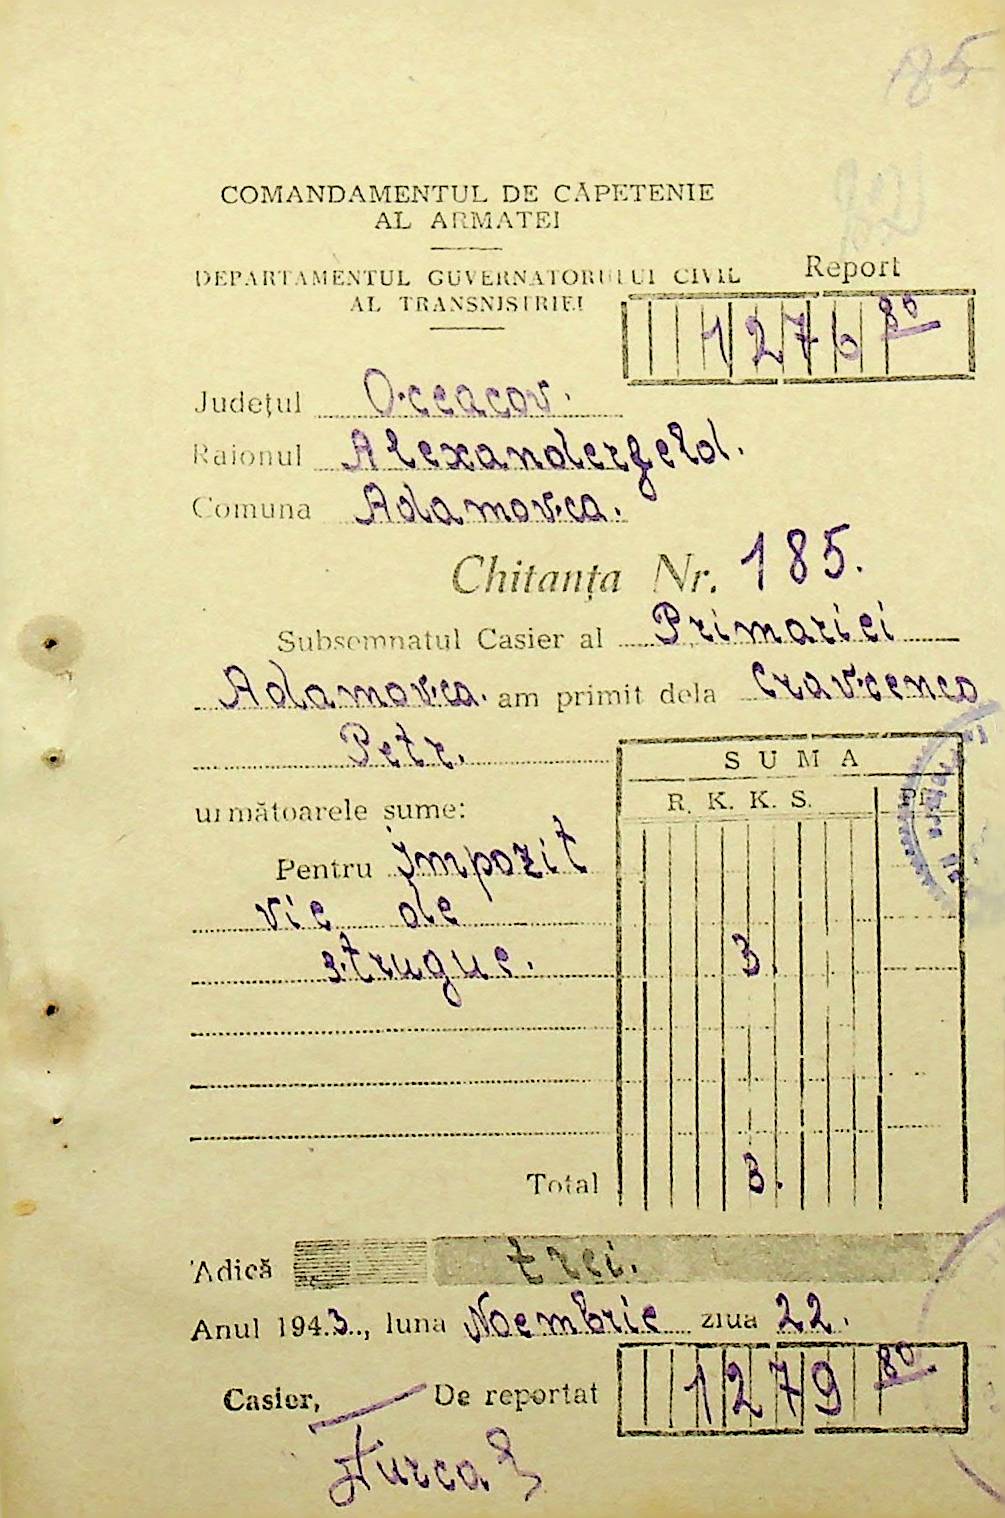 185
COMANDAMENTUL DE CĂPETENIE
AL ARMATEI
DEPARTAMENTUL GUVERNATORULUI CIVIL
AL TRANSNISTRIEI
Report
1276 80
Județul Oceacov.
Raionul Alexanderfeld.
Comuna Adamovca.
Chitanța Nr. 185.
Subsemnatul Casier al Primariei
Adamovca. am primit dela Cravcenco
Petr.
SUMA
R. K. K. S. Pf.
următoarele sume:
Pentru Impozit
vie de
strugue. 3.
Total 3.
Adică trei.
Anul 1943., luna Noembrie ziua 22.
Casier, De reportat 1279 80